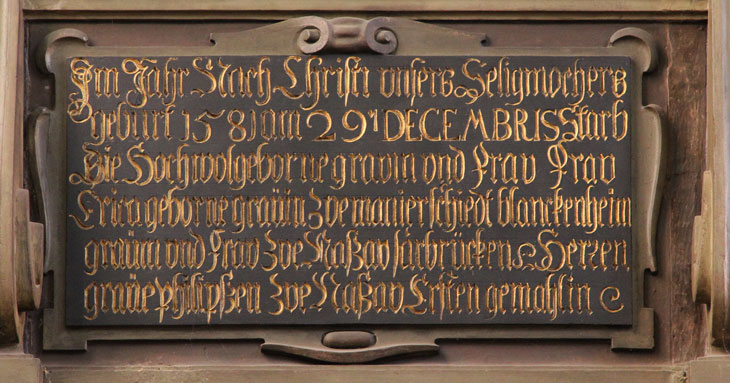 Im Jahr Nach Christi vnsers Seligmochers
geburt 1581 am 29 DECEMBRIS Starb
Die Hochwolgeborne gravin vnd Frav Frav
Erica geborne gravin zve manierschiedt blanckenheim
gravin vnd Frav zve Naßav sarbrücken Herren
grave philipßen zve Naßav Ersten gemahlin